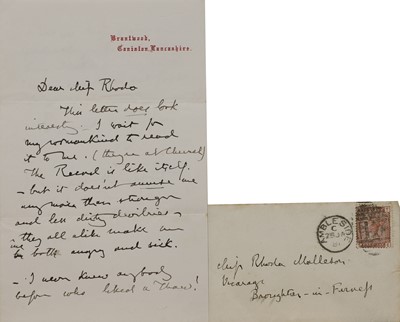 Brantwood,
Coniston, Lancashire.
Dear Miss Rhoda
This letter does look
interesting. I wait for
my womankind to read
it to me. (they're at Church)
The Record is like itself.
- but it doesn't amuse me
any more than stronger
and less dirty devilries -
they all alike make me
both angry and sick.
- I never knew anybody
before who liked a Thaw!
AMBLESIDE
C
Miss Rhoda Malleson
Vicarage
Broughton-in-Furness